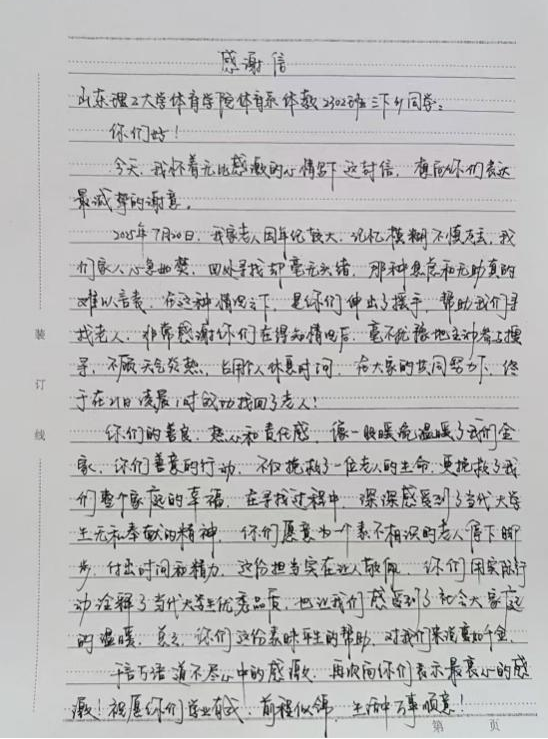 感谢信
山东理工大学体育学院体育系体教2302班三下乡同学:
你们好!
今天,我怀着无比感激的心情写下这封信,想向你们表达
最诚挚的谢意。
2025年7月20日,我家老人因年纪较大,记忆模糊不慎走失,我
们家人心急如焚,四处寻找却毫无头绪,那种焦虑和无助真的
难以言表,在这种情况之下,是你们伸出了援手,帮助我们寻
找老人,非常感谢你们在得知情况后,毫不犹豫地主动参与搜
寻,不顾天气炎热,占用个人休息时间,在大家的共同努力下,终
于在21日凌晨1时成功找回了老人!
你们的善良、热心和责任感,像一股暖流温暖了我们全
家,你们善意的行动,不仅挽救了一位老人的生命,更挽救了我
们整个家庭的幸福,在寻找过程中,深深感受到了当代大学
生无私奉献的精神,你们愿意为一个素不相识的老人停下脚
步,付出时间和精力,这份担当实在让人敬佩,你们用实际行
动诠释了当代大学生优秀品质,也让我们感受到了社会大家庭
的温暖,总之,你们这份素昧平生的帮助,对我们来说重如千金,
千言万语道不尽心中的感激,再次向你们表示最衷心的感
激!祝愿你们学业有成,前程似锦,生活中万事顺意!
装
订
线
第 页